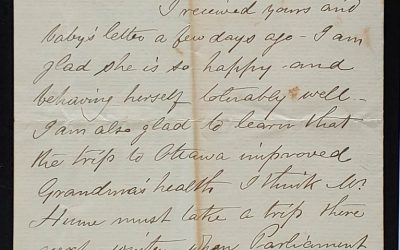 I received yours and
baby's letter a few days ago - I am
glad she is so happy - and
behaving herself tolerably well -
I am also glad to learn that
the trip to Ottawa improved
Grandma's health I think Mr
Hume must take a trip there
next winter when Parliament